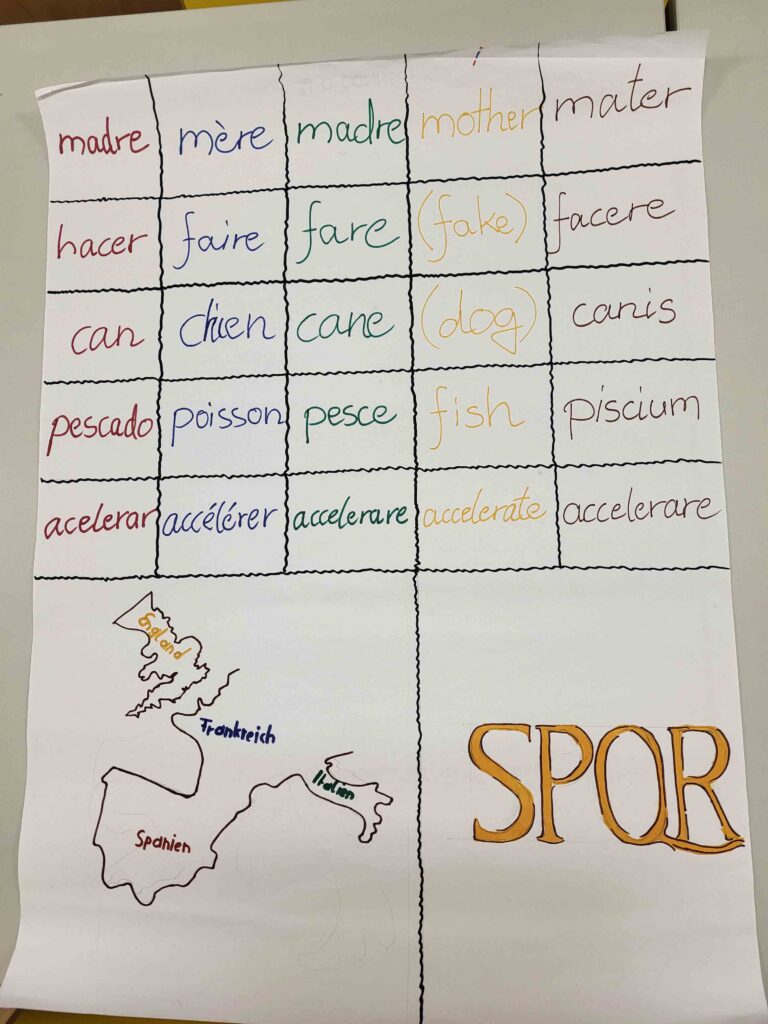 madre mère madre mother mater
hacer faire fare (fake) facere
can chien cane (dog) canis
pescado poisson pesce fish piscium
acelerar accélérer accelerare accelerate accelerare
England
Frankreich
Italien
Spanien
SPQR